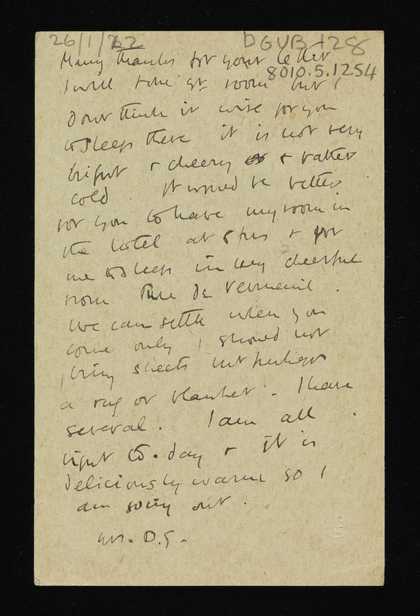 26/1/22 DGVB 128
8010.5.1254
Many thanks for your letter
I will take yr room but I
Dont think it wise for you
to sleep there it is not very
bright & cheery & rather
cold. It would be better
for you to have my room in
the hotel at 5 frs & for
me to sleep in my cheerful
room Rue De Vermeuil.
We can settle when you
come only I should not
bring sheets but perhaps
a rug or blanket. I have
several. I am all
right to-day & it is
deliciously warm so I
am going out.
D.S.